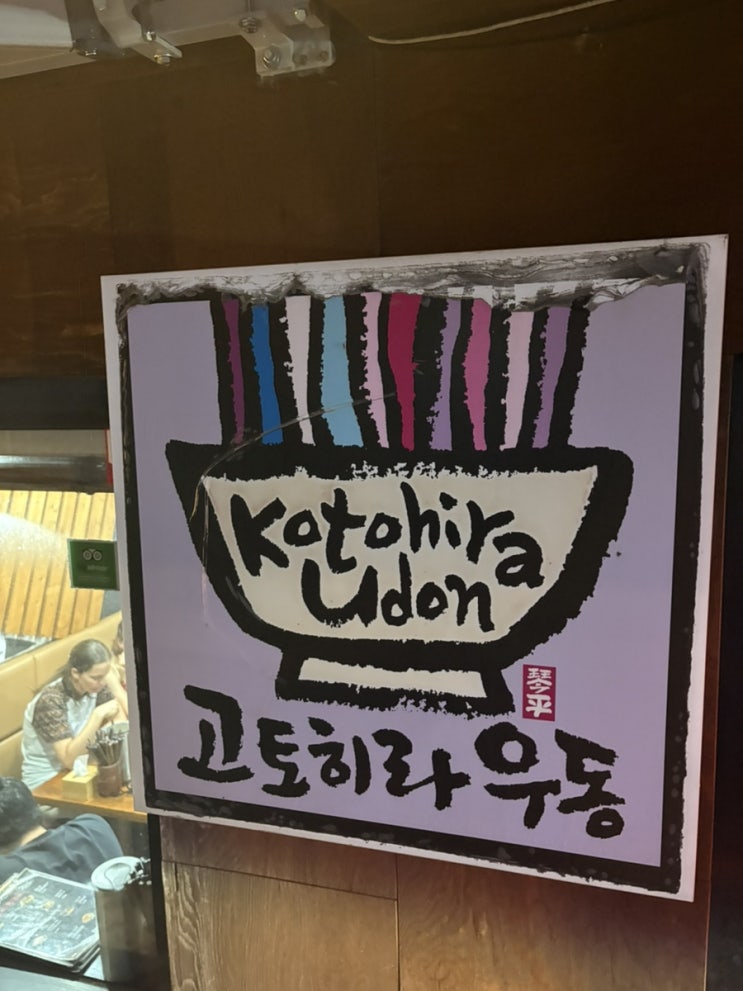 Kotohira
Udon
琴平
고토히라 우동